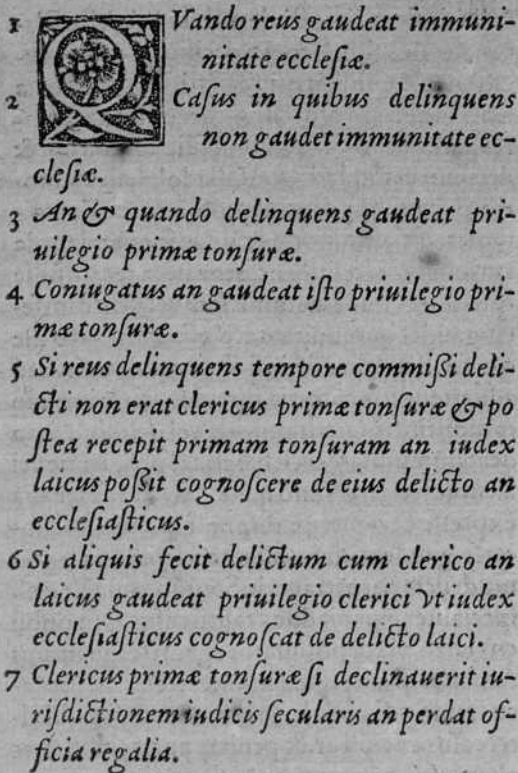 1 QVando reus gaudeat immuni-
nitate ecclesiæ.
2 Casus in quibus delinquens
non gaudet immunitate ec-
clesiæ.
3 An & quando delinquens gaudeat pri-
uilegio primæ tonsuræ.
4 Coniugatus an gaudeat isto priuilegio pri-
mæ tonsuræ.
5 Si reus delinquens tempore commißi deli-
cti non erat clericus primæ tonsuræ & po
stea recepit primam tonsuram an iudex
laicus poßit cognoscere de eius delicto an
ecclesiasticus.
6 Si aliquis fecit delictum cum clerico an
laicus gaudeat priuilegio clerici vt iudex
ecclesiasticus cognoscat de delicto laici.
7 Clericus primæ tonsuræ si declinauerit iu-
risdictionem iudicis secularis an perdat of-
ficia regalia.